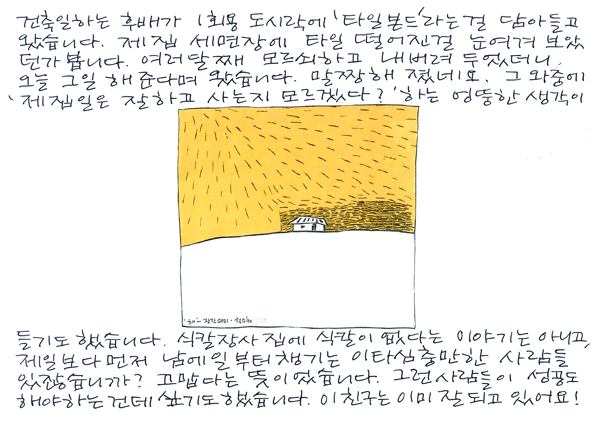 건축일하는 후배가 1회용 도시락에 '타일본드'라는걸 담아들고
왔습니다. 제집 세면장에 타일 떨어진걸 눈여겨 보았
던가봅니다. 여러달째 모르쇠하고 내버려 두었더니,
오늘 그일 해준다며 왔습니다. 말짱해 졌네요. 그 와중에
'제집일은 잘하고 사는지 모르겠다?' 하는 엉뚱한 생각이
들기도 했습니다. 식칼장사 집에 식칼이 없다는 이야기는 아니고,
제일보다 먼저 남에일부터 챙기는 이타심 충만한 사람들
있잖습니까? 고맙다는 뜻이었습니다. 그런 사람들이 성공도
해야하는건데 싶기도했습니다. 이친구는 이미 잘되고 있어요!